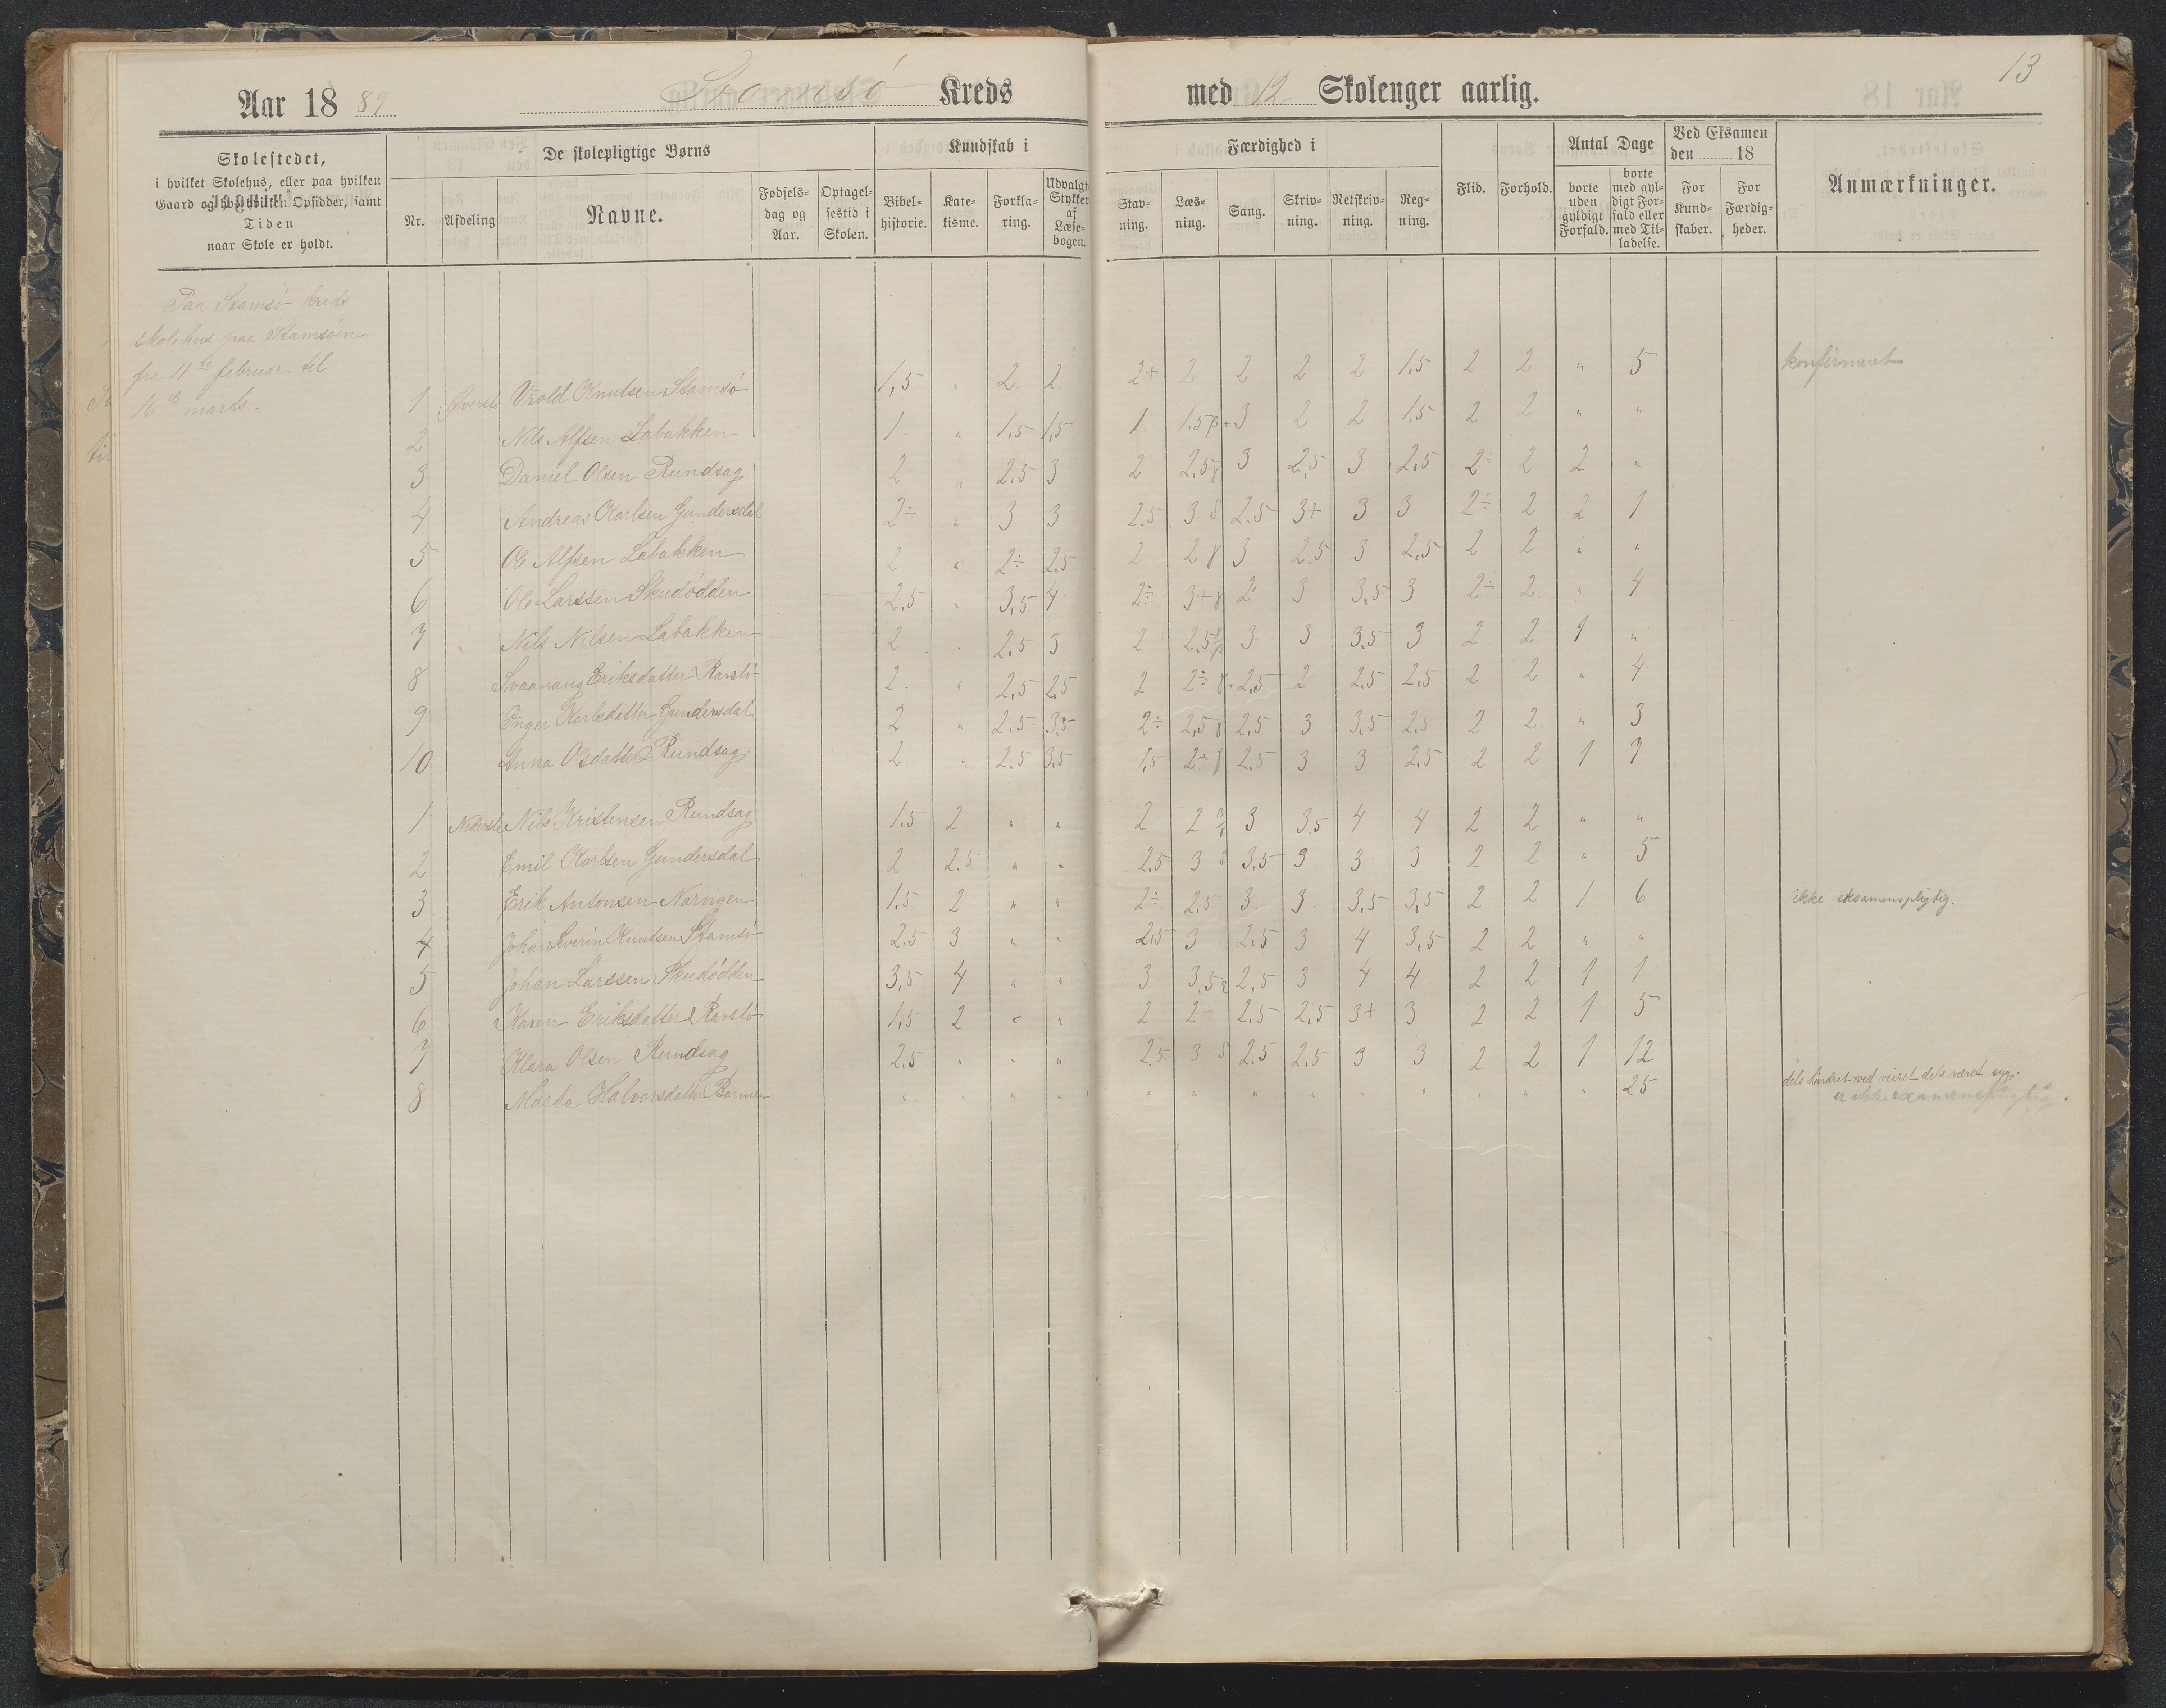 13
Aar 18 89 Stamsø Kreds med 12 Skoleuger aarlig.
Skolestedet,
i hvilket Skolehus, eller paa hvilken
Gaard og hos hvilken Opsidder, samt
Tiden
naar Skole er holdt.
De skolepligtige Børns
Nr. Afdeling Navne. Fødselsdag og Aar. Optagelsestid i Skolen.
Kundskab i
Bibelhistorie. Katekisme. Forklaring. Udvalgte Stykker af Læsebogen.
Færdighed i
Stavning. Læsning. Sang. Skrivning. Retskrivning. Regning.
Flid. Forhold.
Antal Dage
borte uden gyldigt Forfald. borte med gyldigt Forfald eller med Tilladelse.
Ved Eksamen
den 18
For Kundskaber. For Færdigheder.
Anmærkninger.
Paa Stamsø kreds
skolehus paa Stamsøen
fra 11te februar til
16de marts.
1 Øverste Vrold Knutsen Stamsø 1,5 " 2 2 2+ 2 2 2 2 1,5 2 2 " 5 konfirmeret
2 Nils Alfsen Labakken 1 " 1,5 1,5 1 1.5 3 2 2 1,5 2 2 " "
3 Daniel Olsen Rundsag 2 " 2,5 3 2 2,5 3 2,5 3 2,5 2÷ 2 2 "
4 Andreas Karlsen Gundersdal 2÷ " 3 3 2.5 3 2.5 3+ 3 3 2÷ 2 2 1
5 Ole Alfsen Labakken 2 " 2÷ 2.5 2 2 3 2.5 3 2,5 2 2 " "
6 Ole Larssen Skudødden 2,5 " 3,5 4 2÷ 3+ 2 3 3,5 3 2÷ 2 " 4
7 Nils Nilsen Labakken 2 " 2,5 3 2 2,5 3 3 3.5 3 2 2 1 "
8 Svaanaug Eriksdatter Ravstø 2 " 2,5 2,5 2 2÷ 2,5 2 2.5 2,5 2 2 " 4
9 Inger Karlsdatter Gundersdal 2 " 2.5 3.5 2÷ 2,5 2,5 3 3,5 2.5 2 2 " 3
10 Anna Olsdatter Rundsag 2 " 2.5 3.5 1,5 2÷ 2,5 3 3 2,5 2 2 1 7
1 Nederste Nils Kristensen Rundsag 1.5 2 " " 2 2 3 3.5 4 4 2 2 " "
2 Emil Karlsen Gundersdal 2 2.5 " " 2.5 3 3,5 3 3 3 2 2 " 5
3 Erik Antonsen Narvigen 1,5 2 " " 2÷ 2.5 3 3 3,5 3,5 2 2 1 6 ikke eksamenspligtig.
4 Johan Severin Knutsen Stamsø 2.5 3 " " 2,5 3 2,5 3 4 3,5 2 2 " "
5 Johan Larssen Skudødden 3,5 4 " " 3 3,5 2,5 3 4 4 2 2 1 1
6 Karen Eriksdatter Ravstø 1,5 2 " " 2 2 2.5 2,5 3+ 3 2 2 1 5
7 Klara Olsen Rundsag 2.5 " " " 2.5 3 2.5 2,5 3 3 2 2 1 12
8 Marta Halvorsdatter " " " " " " " " " " " " " 25 dels hindret ved veiret dels været syg.
er ikke examenspligtig.